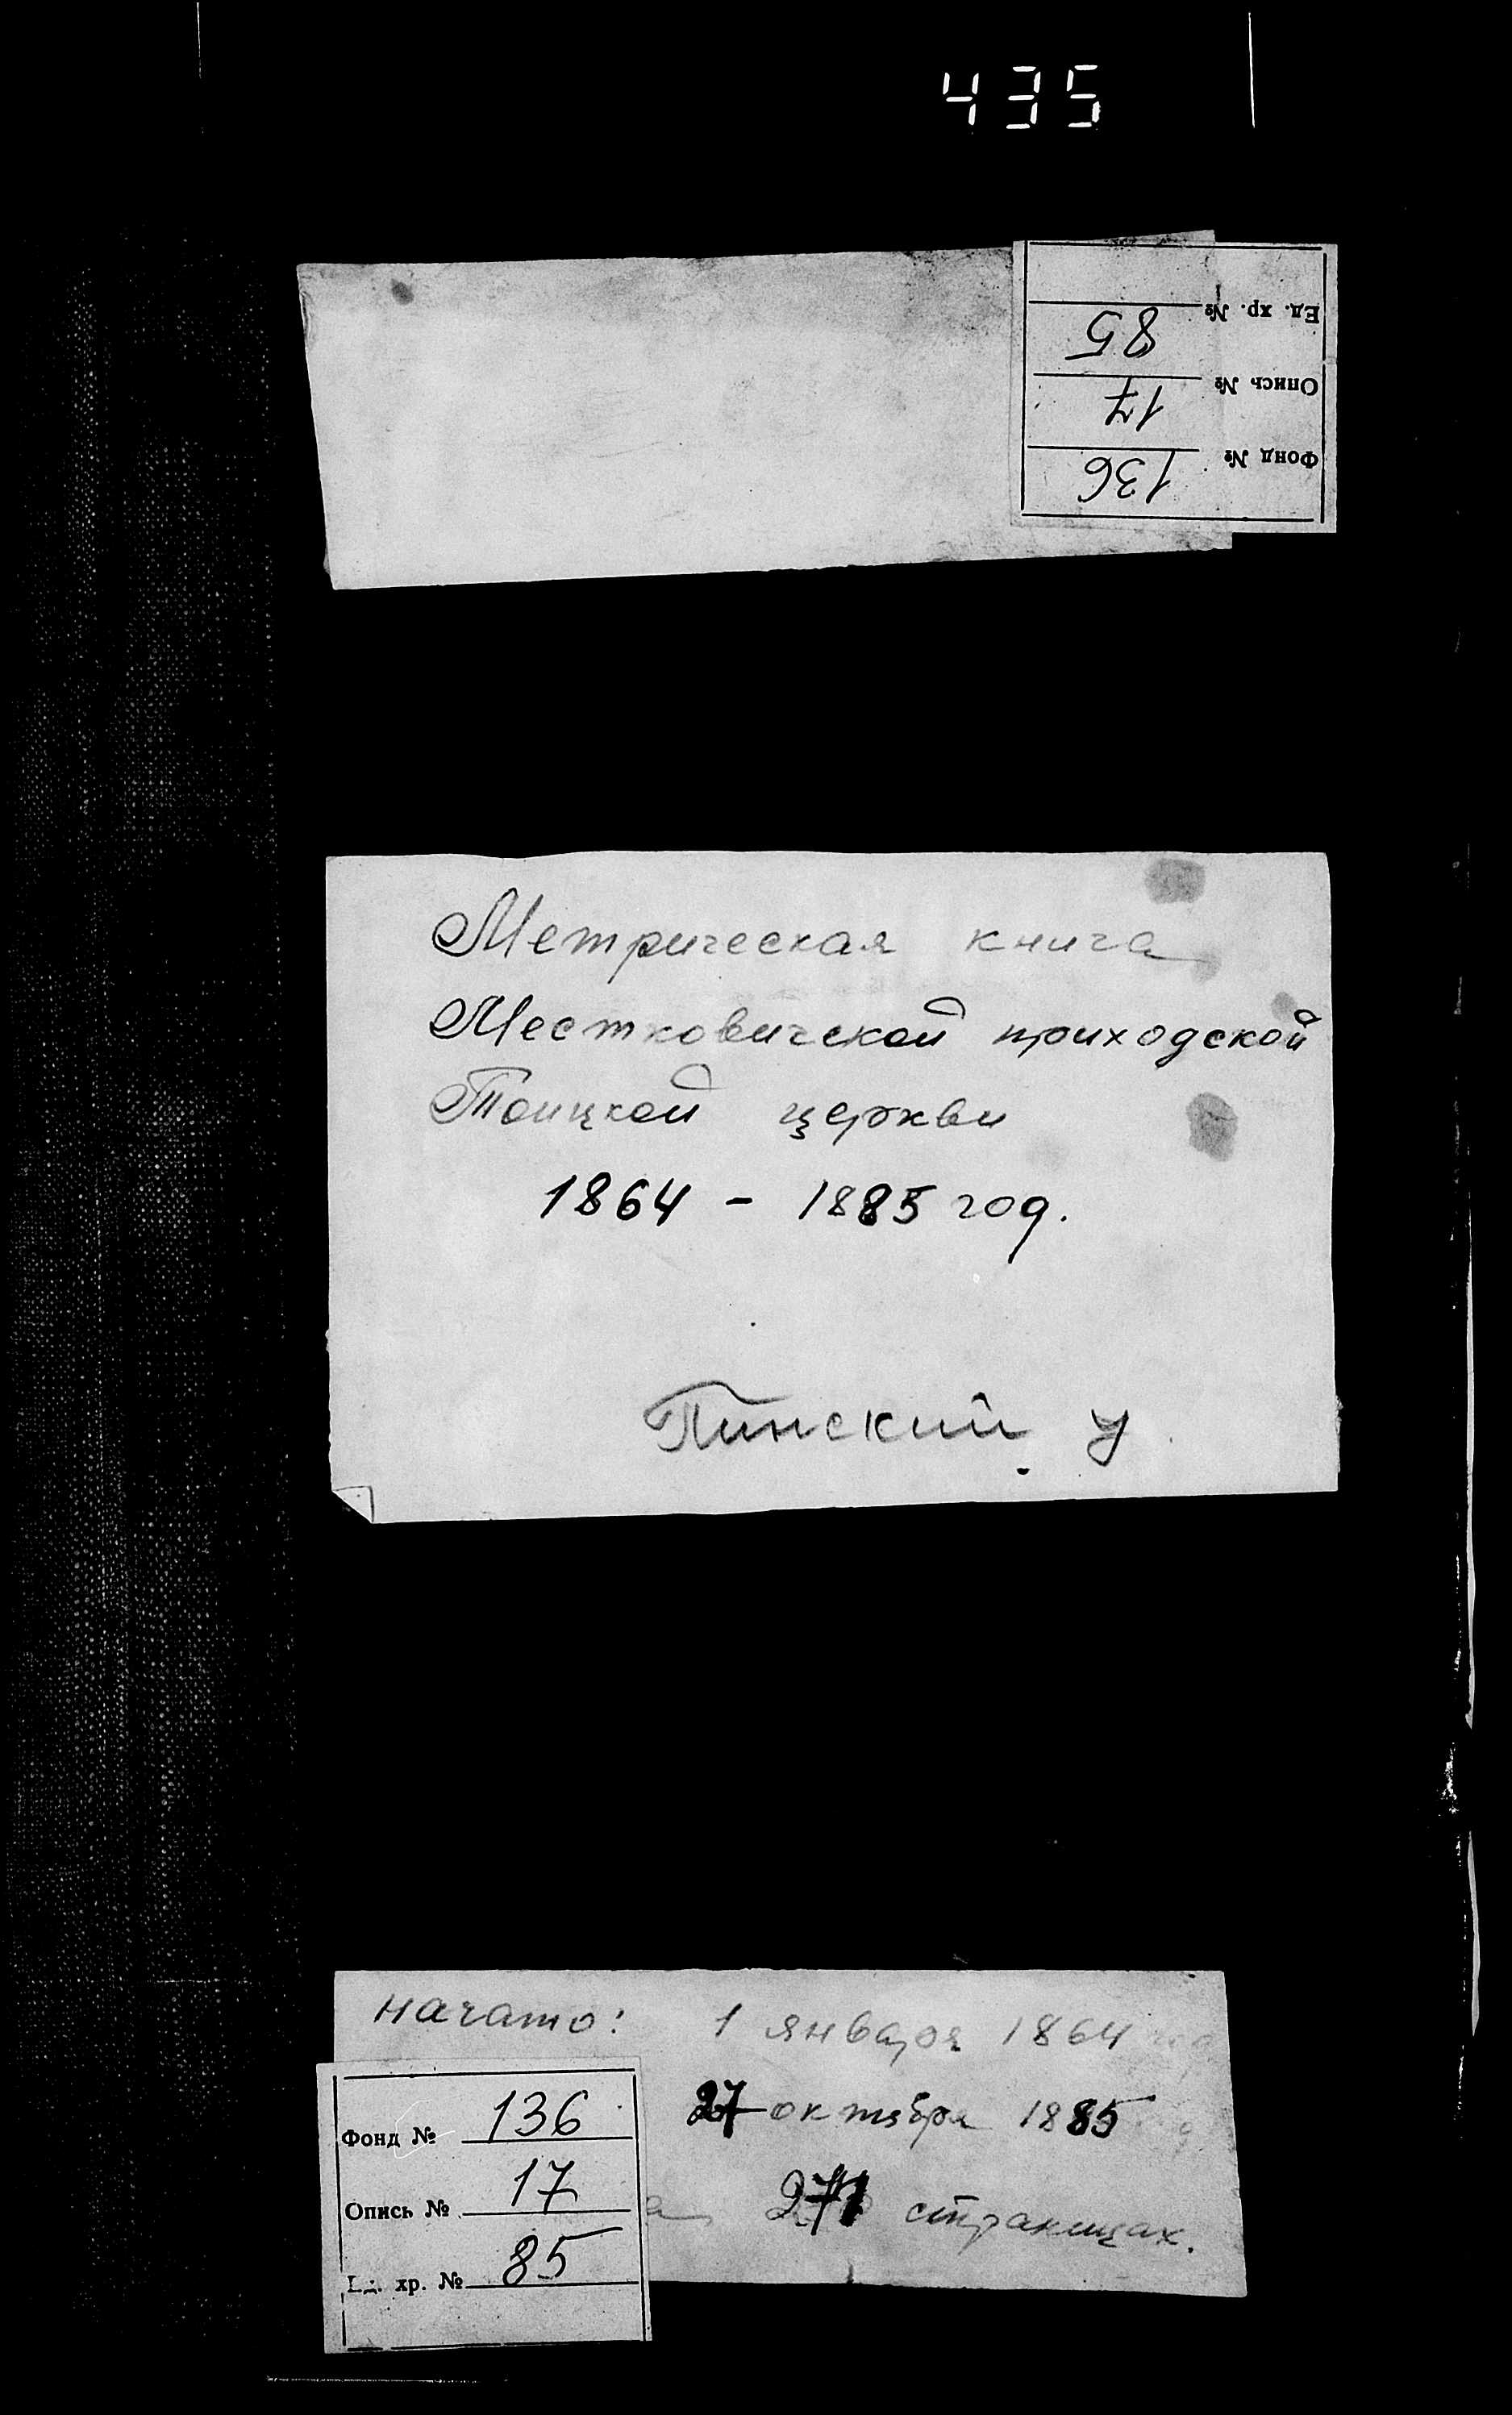 435
Ед. хр. № 85
Опись № 17
Фонд № 136
Метрическая книга
Местковичской приходской
Тоицкой церкви
1864 - 1885 год.
Пинский у
начато: 1 января 1864
27 октября 1885
а 271 страницах.
Фонд № 136
Опись № 17
Ед. хр. № 85